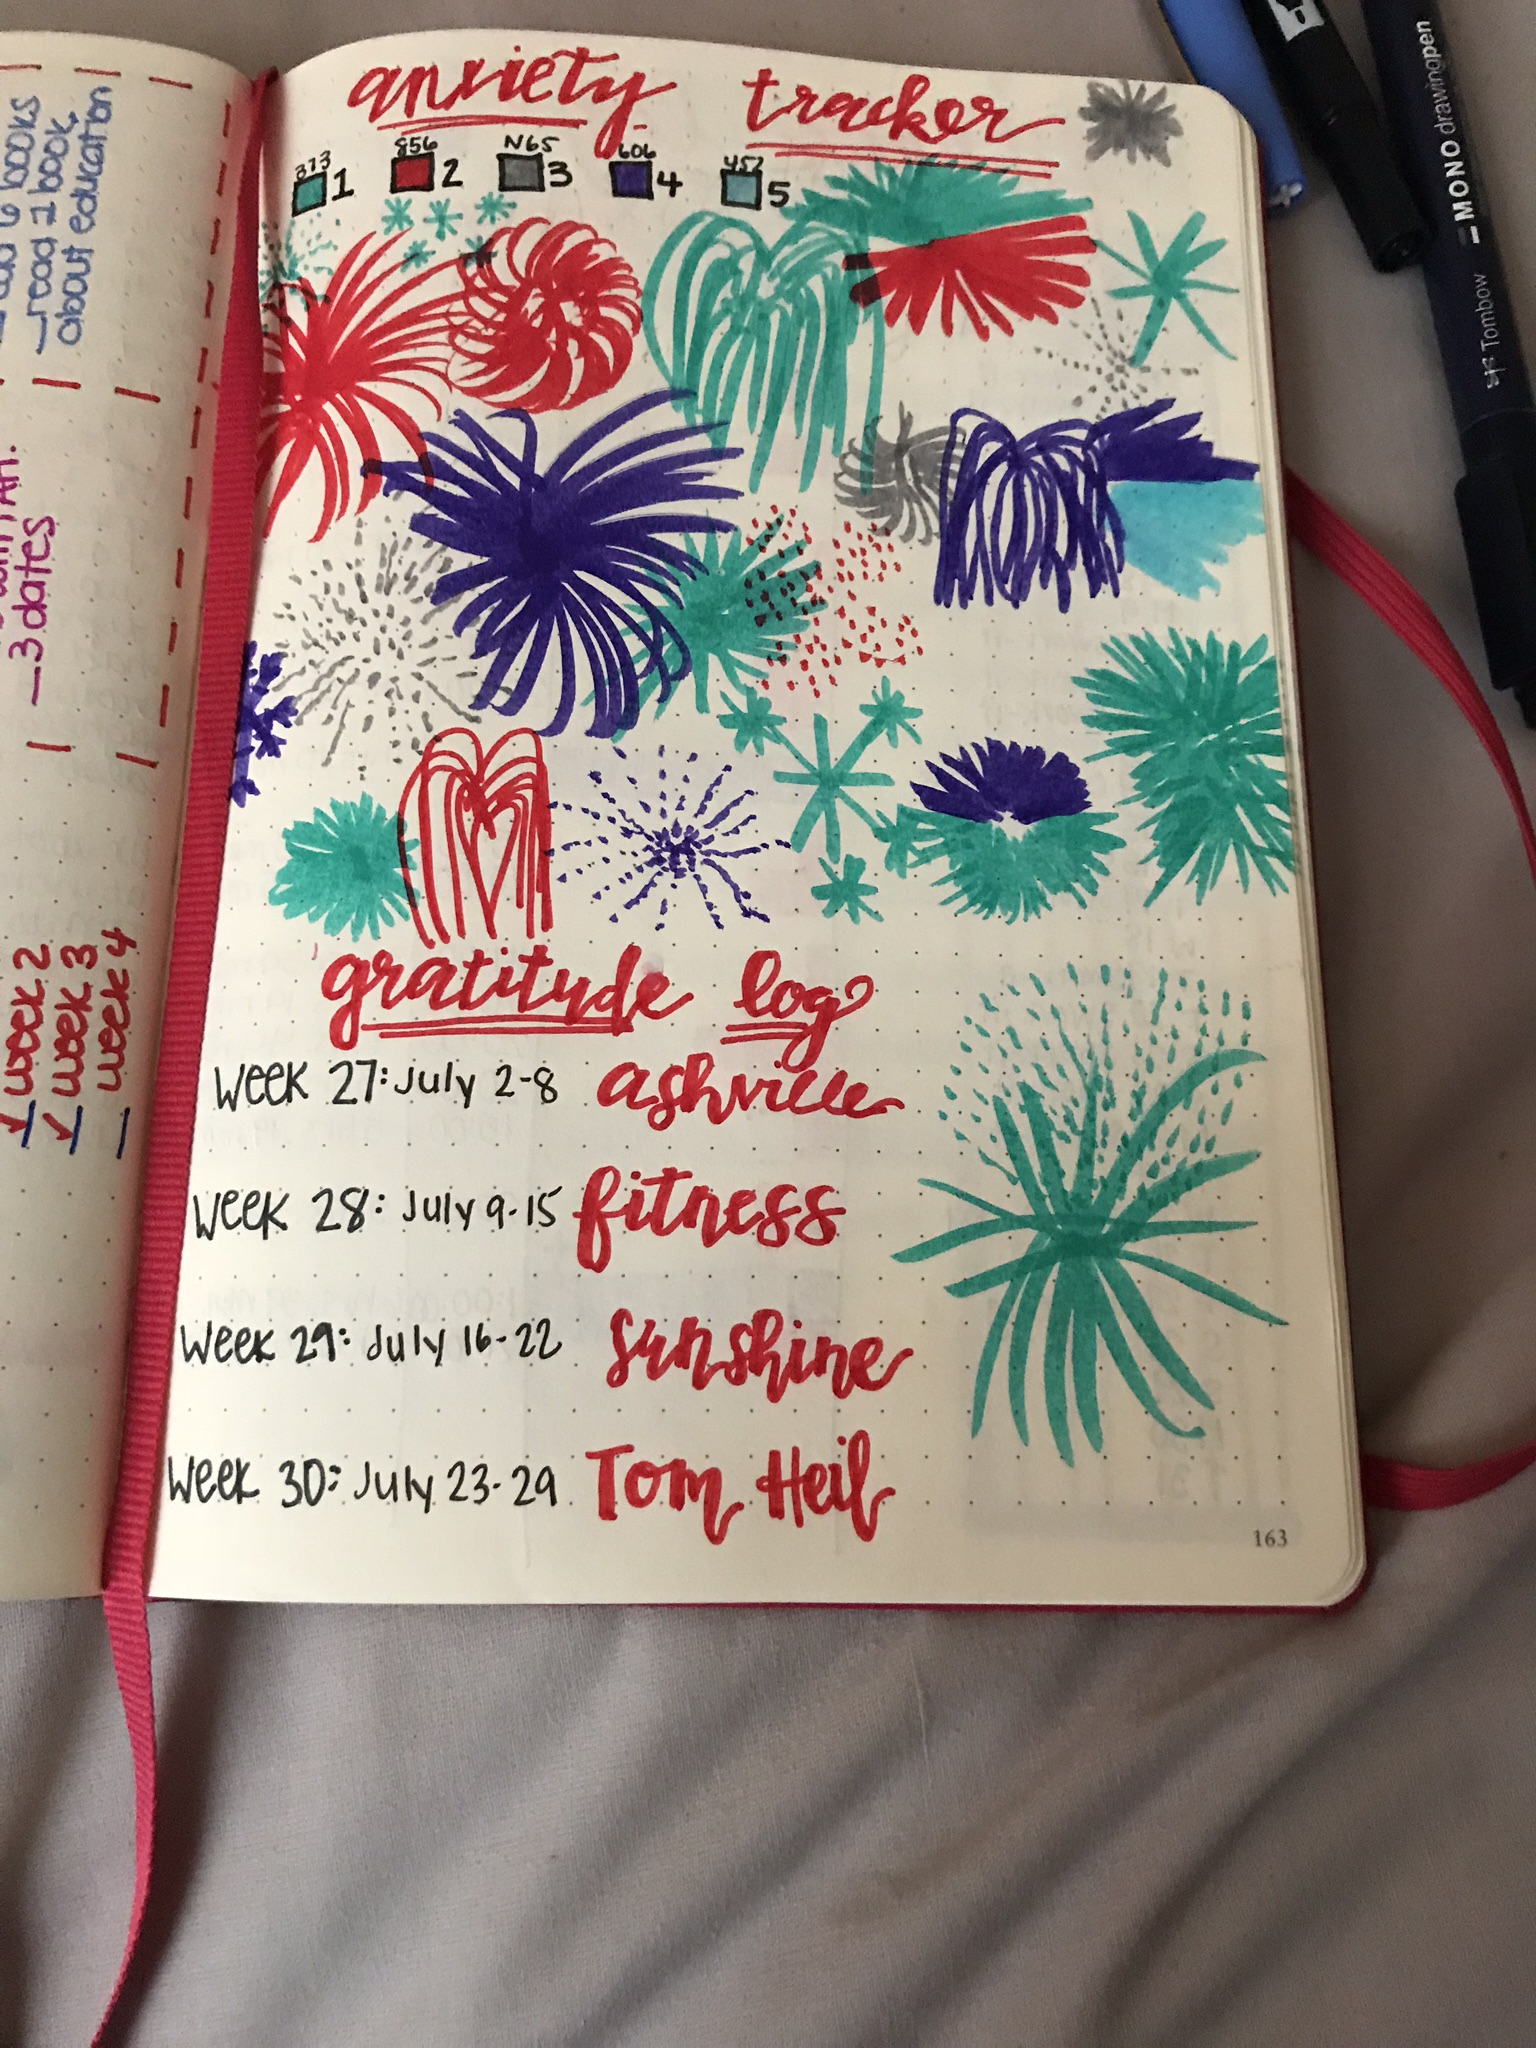 6 books
—read 1 book
about education
—3 dates
week 2
week 3
week 4
anxiety tracker
373 856 N65 606 452
1 2 3 4 5
gratitude log
Week 27: July 2-8 ashville
Week 28: July 9-15 fitness
Week 29: July 16-22 sunshine
Week 30: July 23-29 Tom Heil
163
MONO drawingpen
Tombow